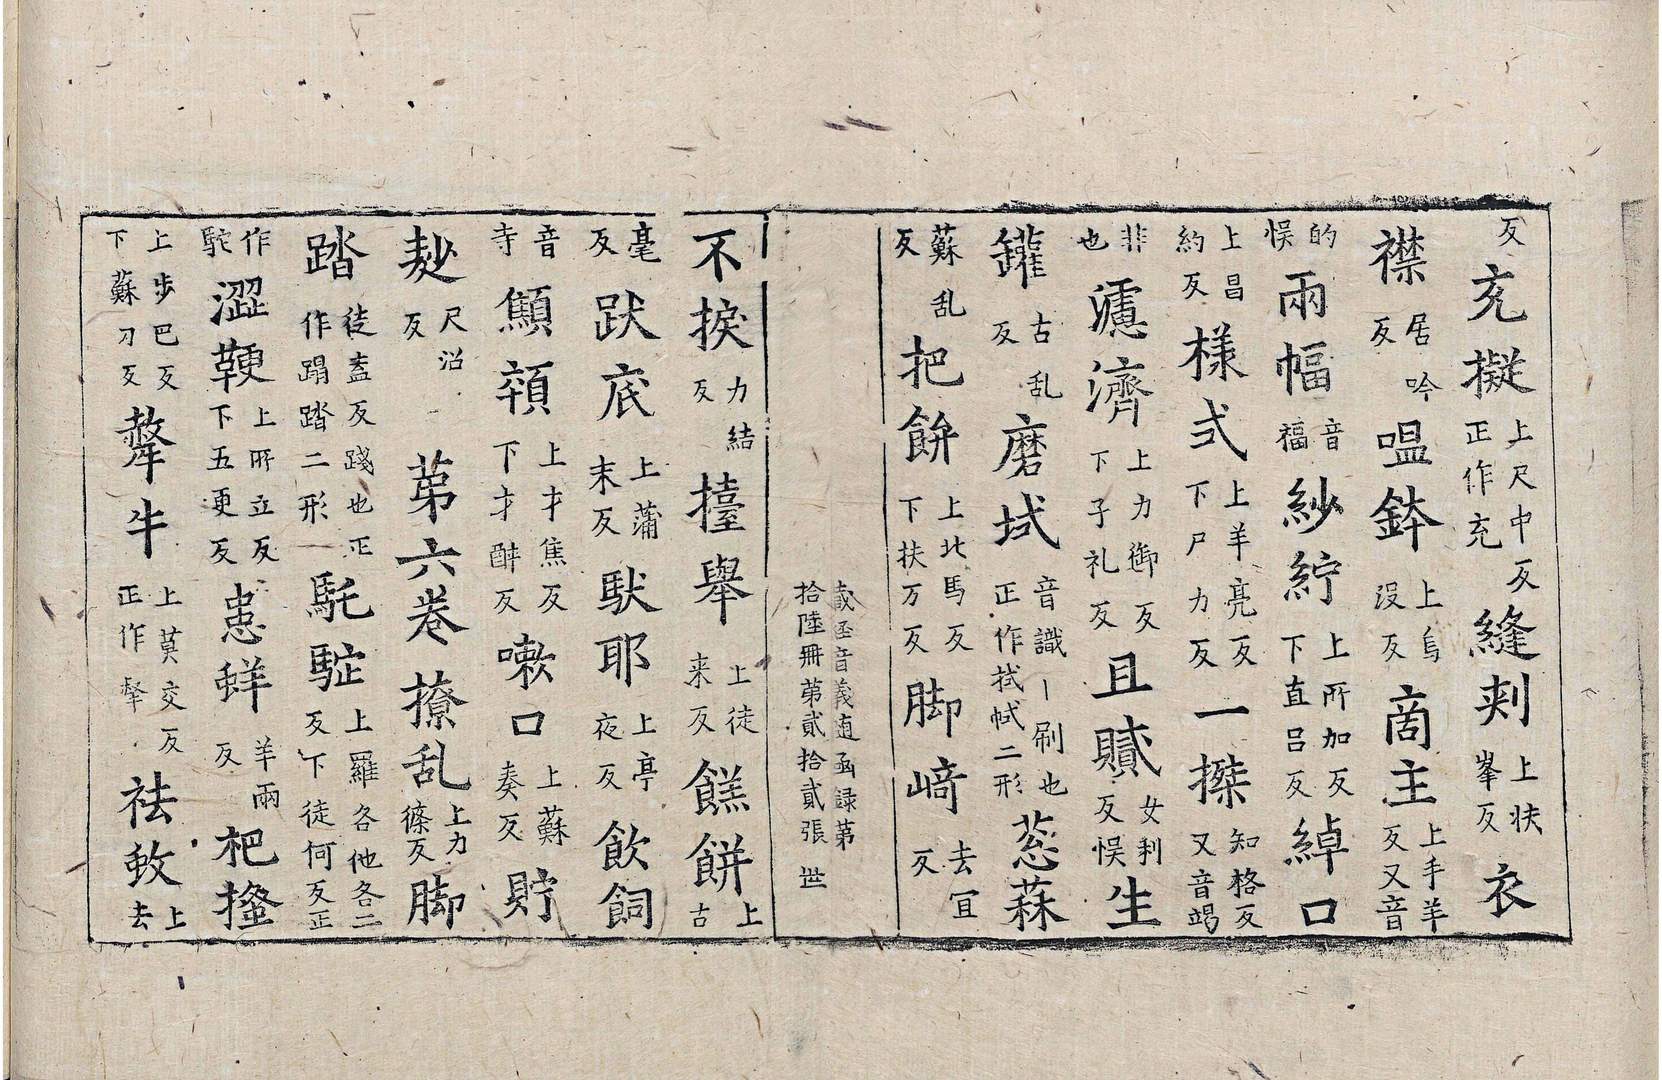 反充擬上尺中反正作充縫刾上扶峯反衣
襟居吟反嗢鉢上烏没反啇主上手羊反又音
的悮兩幅音福紗紵上所加反下直吕反綽口
上昌約反樣式上羊亮反下尸力反一搩知格反又音竭
非也濾濟上力御反下子礼反且贓女利反悮生
鑵古乱反磨拭音識丨刷也正作拭𢂑二形葱蒜
蘇乱反把餅上北馬反下扶万反脚﨑去宜反
藏経音義随函録第
拾陸冊第貳拾貳張 世
不捩力結反擡舉上徒来反餻餅上古
毫反跋底上蒲末反馱耶上亭夜反飲飼
音寺顦顇上才焦反下才醉反嗽口上蘇奏反貯
麨尺沼反 苐六卷撩乱上力篠反脚
踏徒盖反踐也正作蹋踏二形馲駞上羅各他各二反下徒何反正
作駝澀鞕上所立反下五更反恚蛘羊兩反杷撜
上步巴反下蘇刀反犛牛上莫交反正作犛祛蚊上去